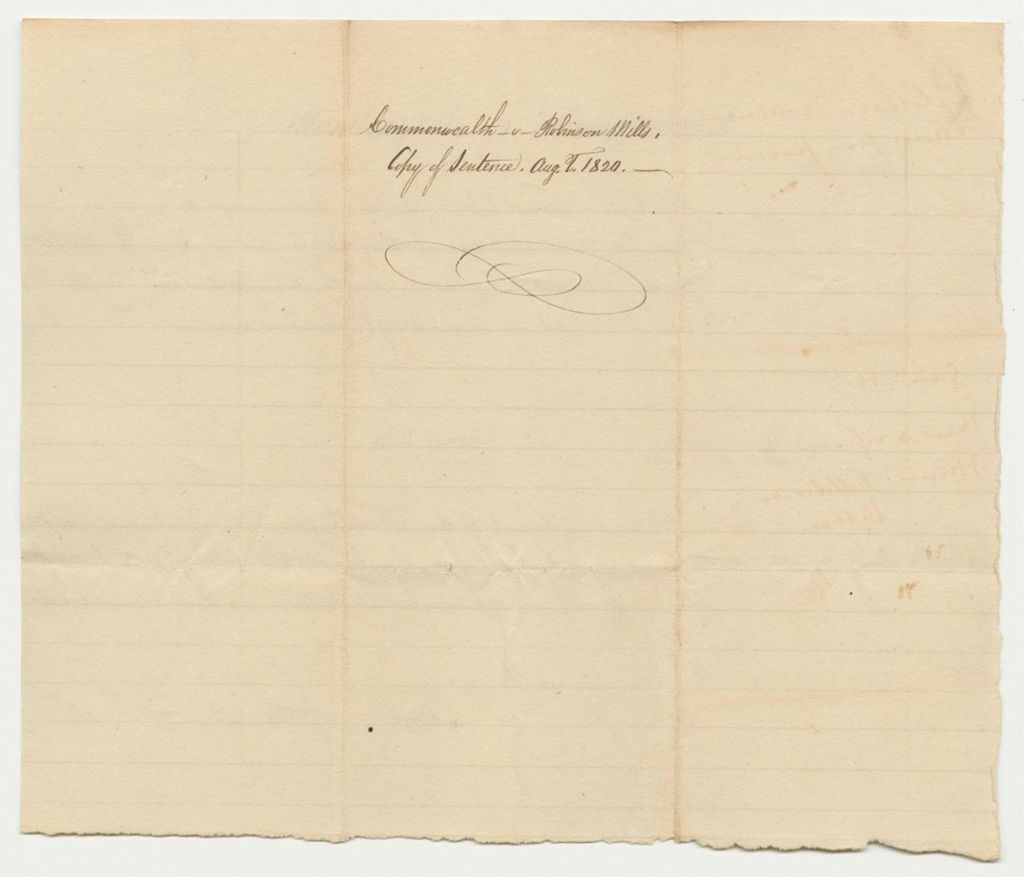 Commonwealth - v - Robinson Mills.
Copy of Sentence. Aug. T. 1820. —